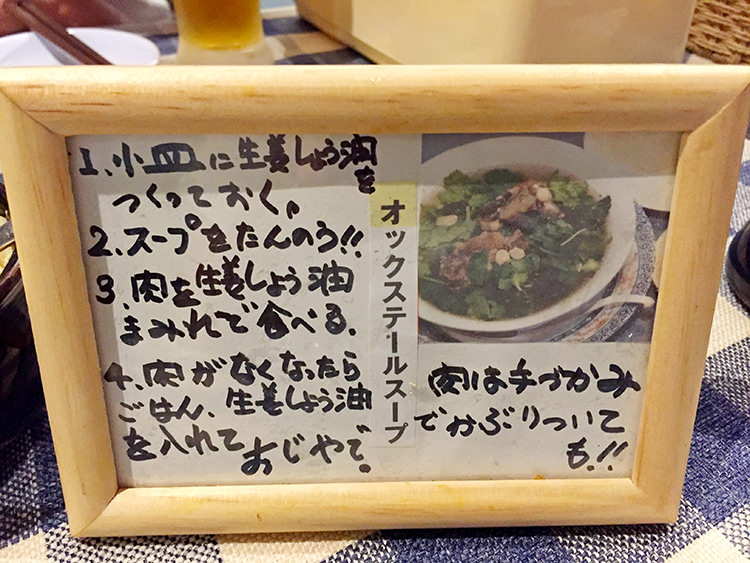 1、小皿に生姜しょう油を
つくっておく。
2、スープをたんのう!!
3、肉を生姜しょう油
まみれで食べる、
4、肉がなくなったら
ごはん、生姜しょう油
を入れておじやで。
オックステールスープ
肉は手づかみ
でかぶりついて
も!!